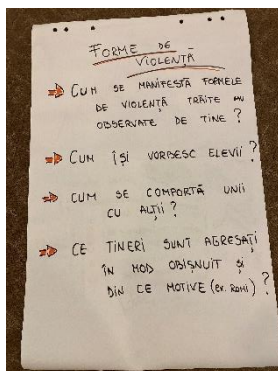 FORME DE
VIOLENȚĂ
CUM SE MANIFESTĂ FORMELE
DE VIOLENȚĂ TRĂITE SAU
OBSERVATE DE TINE?
CUM ÎȘI VORBESC ELEVII?
CUM SE COMPORTĂ UNII
CU ALȚII?
CE TINERI SUNT AGRESAȚI
ÎN MOD OBIȘNUIT ȘI
DIN CE MOTIVE (EX. ROMI)?